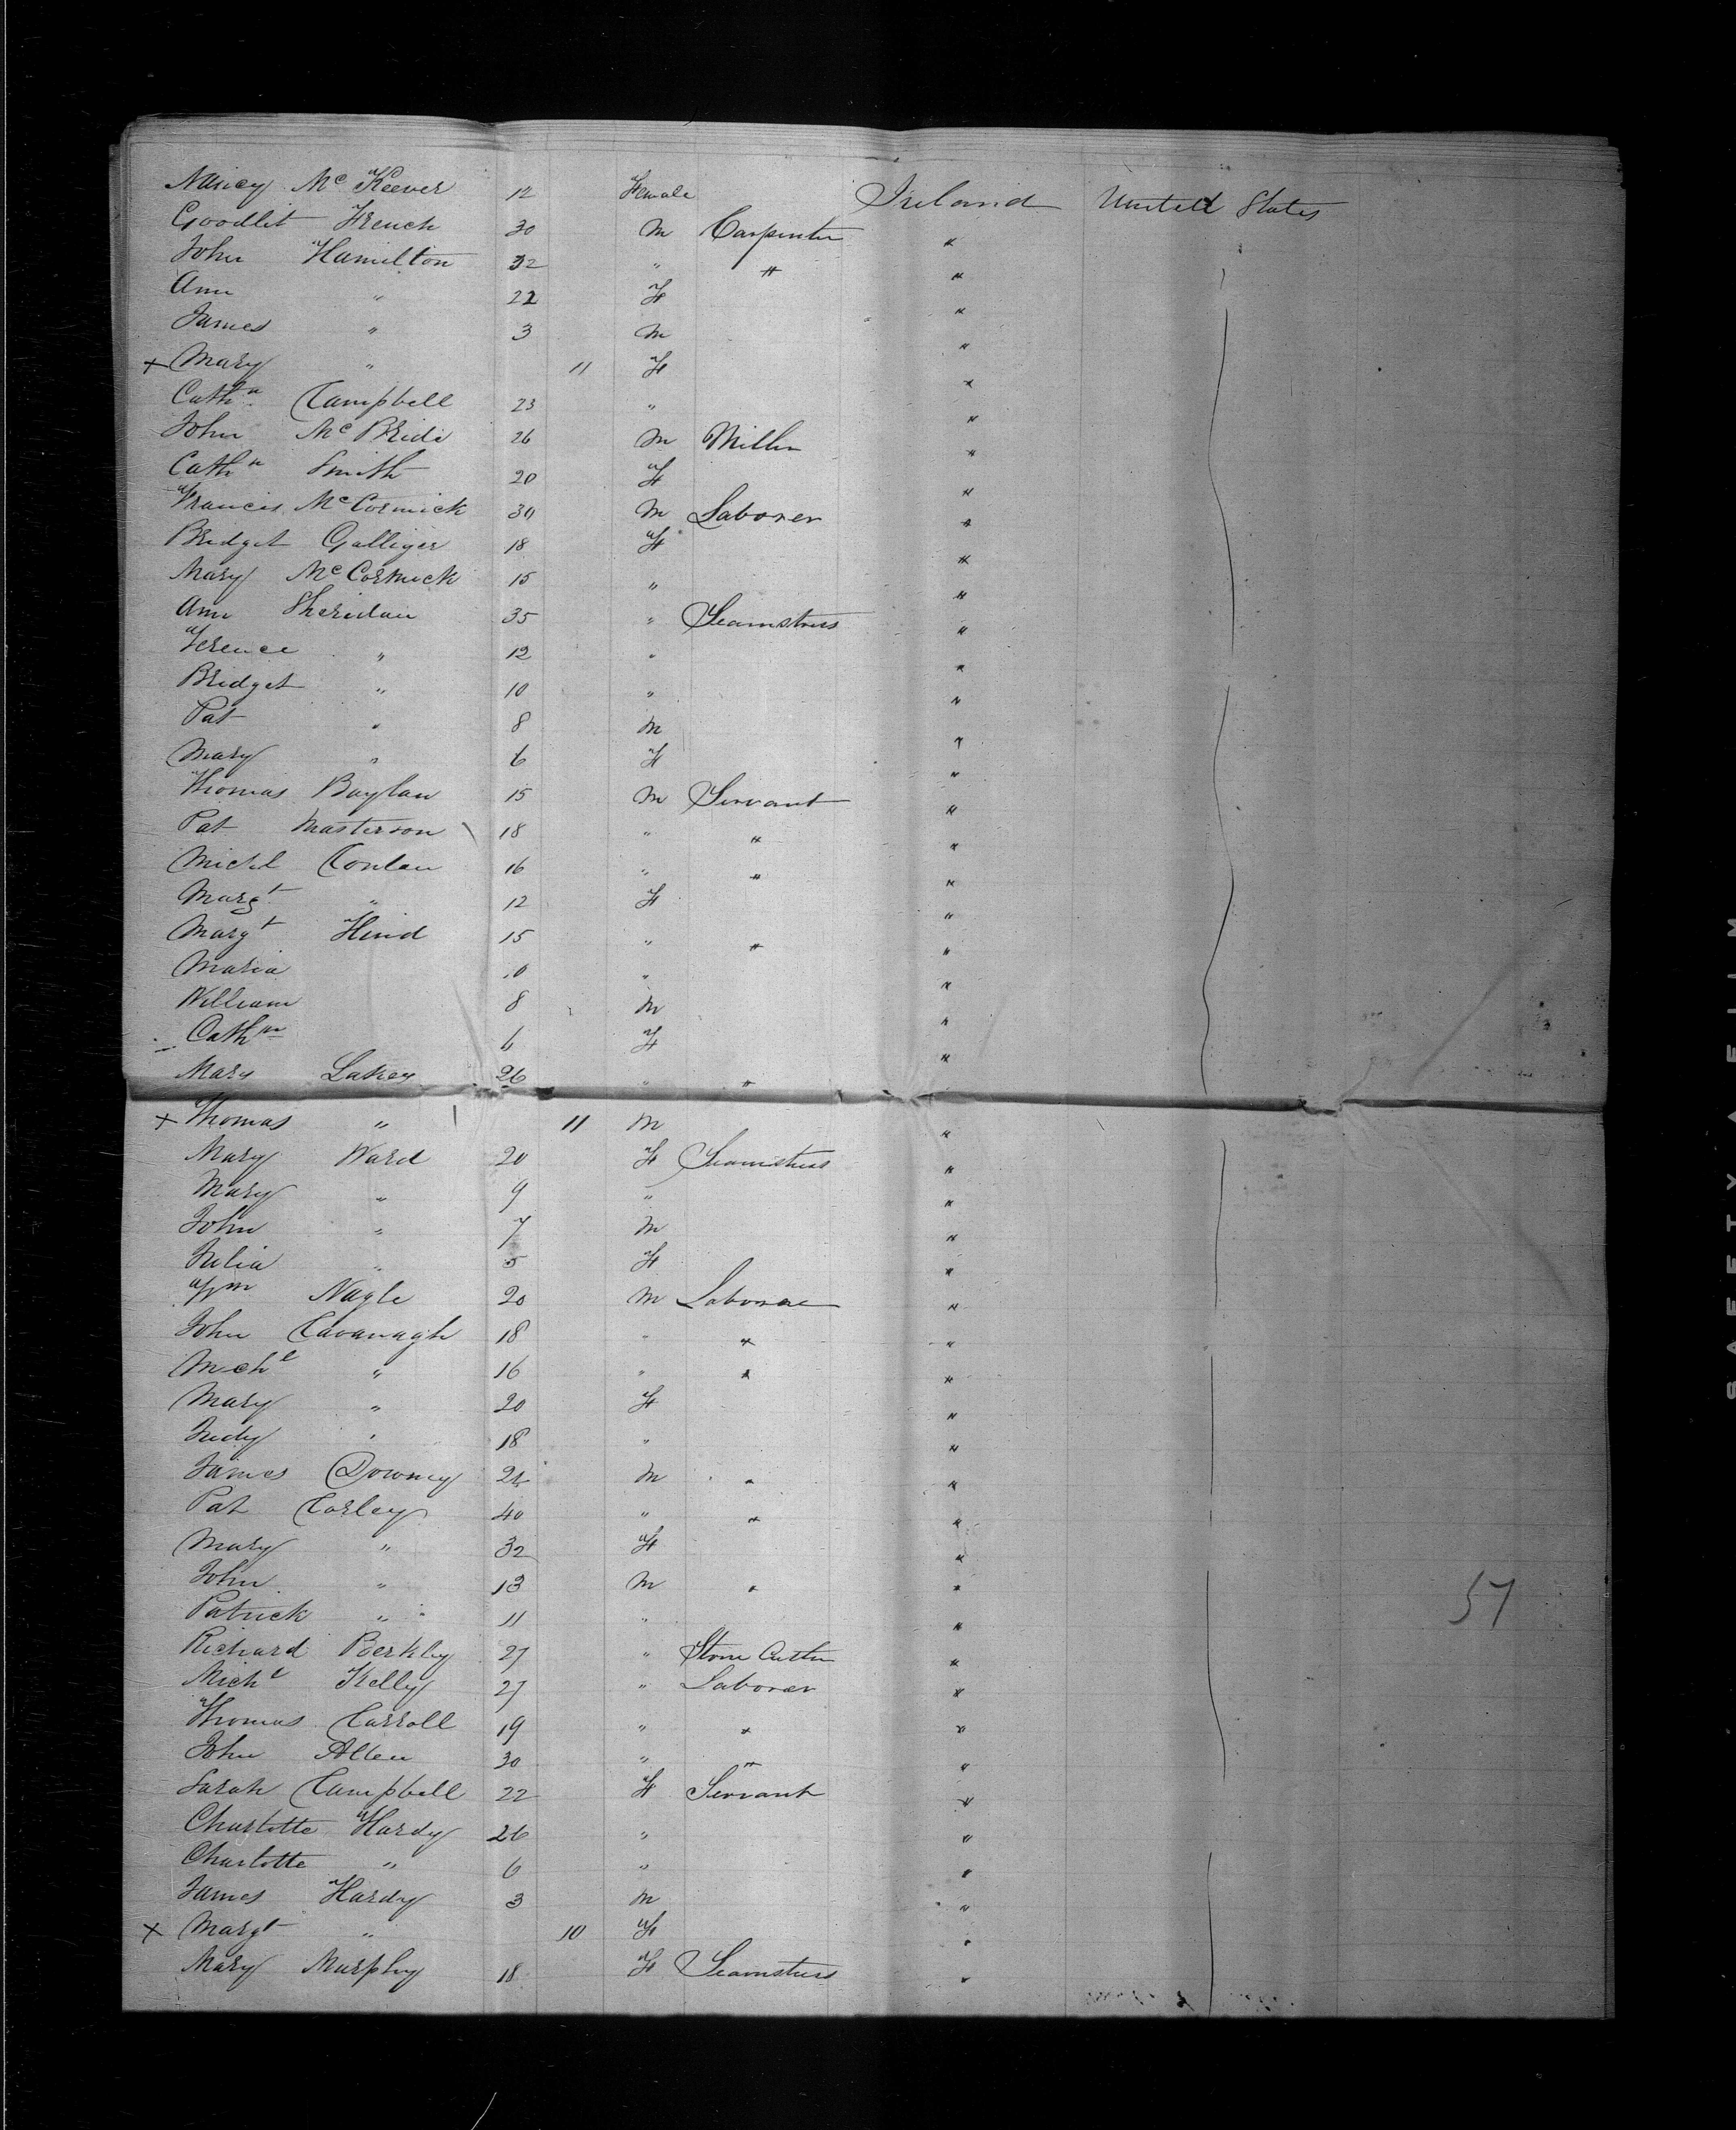 Nancy McKeever 12 Female Ireland United States
Goodlit French 30 M Carpenter "
John Hamilton 32 " " "
Ann " 22 F "
James " 3 M "
+ Mary " 11 F "
Cathn Campbell 23 " "
John McBride 26 M Miller "
Cathn Smith 20 F "
Francis McCormick 30 M Laborer "
Bridget Galliger 18 F "
Mary McCormick 15 " "
Ann Sheridan 35 " Seamstress "
Terence " 12 " "
Bridget " 10 " "
Pat " 8 M "
Mary " 6 F "
Thomas Boylan 15 M Servant "
Pat Masterson 18 " " "
Michl Conlan 16 " " "
Margt " 12 F "
Margt Hind 15 " " "
Maria 10 " "
William 8 M "
Cathn 6 F "
Mary Lakey 26 " "
+ Thomas " 11 M "
Mary Ward 20 F Seamstress "
Mary " 9 " "
John " 7 M "
Julia " 5 F "
Wm Nagle 20 M Laborer "
John Cavanagh 18 " " "
Mchl " 16 " " "
Mary " 20 F "
Judy " 18 " "
James Downey M " "
Pat Corley 40 " " "
Mary " 32 F "
John " 13 M " "
Patrick " 11 " "
Richard Berkley 27 " Stone Cutter "
Michl Kelly 27 " Laborer "
Thomas Carroll 19 " " "
John Allen 30 " " "
Sarah Campbell 22 F Servant "
Charlotte Hardy 26 " "
Charlotte " 6 " "
James Hardy 3 M "
+ Margt " 10 F "
Mary Murphy 18 F Seamstress "
57
SAFETY FILM